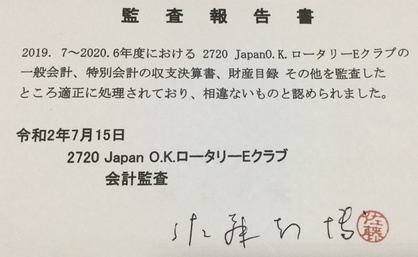 監査報告書
2019. 7～2020. 6年度における 2720 JapanO.K.ロータリーEクラブの
一般会計、特別会計の収支決算書、財産目録 その他を監査した
ところ適正に処理されており、相違ないものと認められました。
令和2年7月15日
2720 Japan O.K.ロータリーEクラブ
会計監査
佐藤